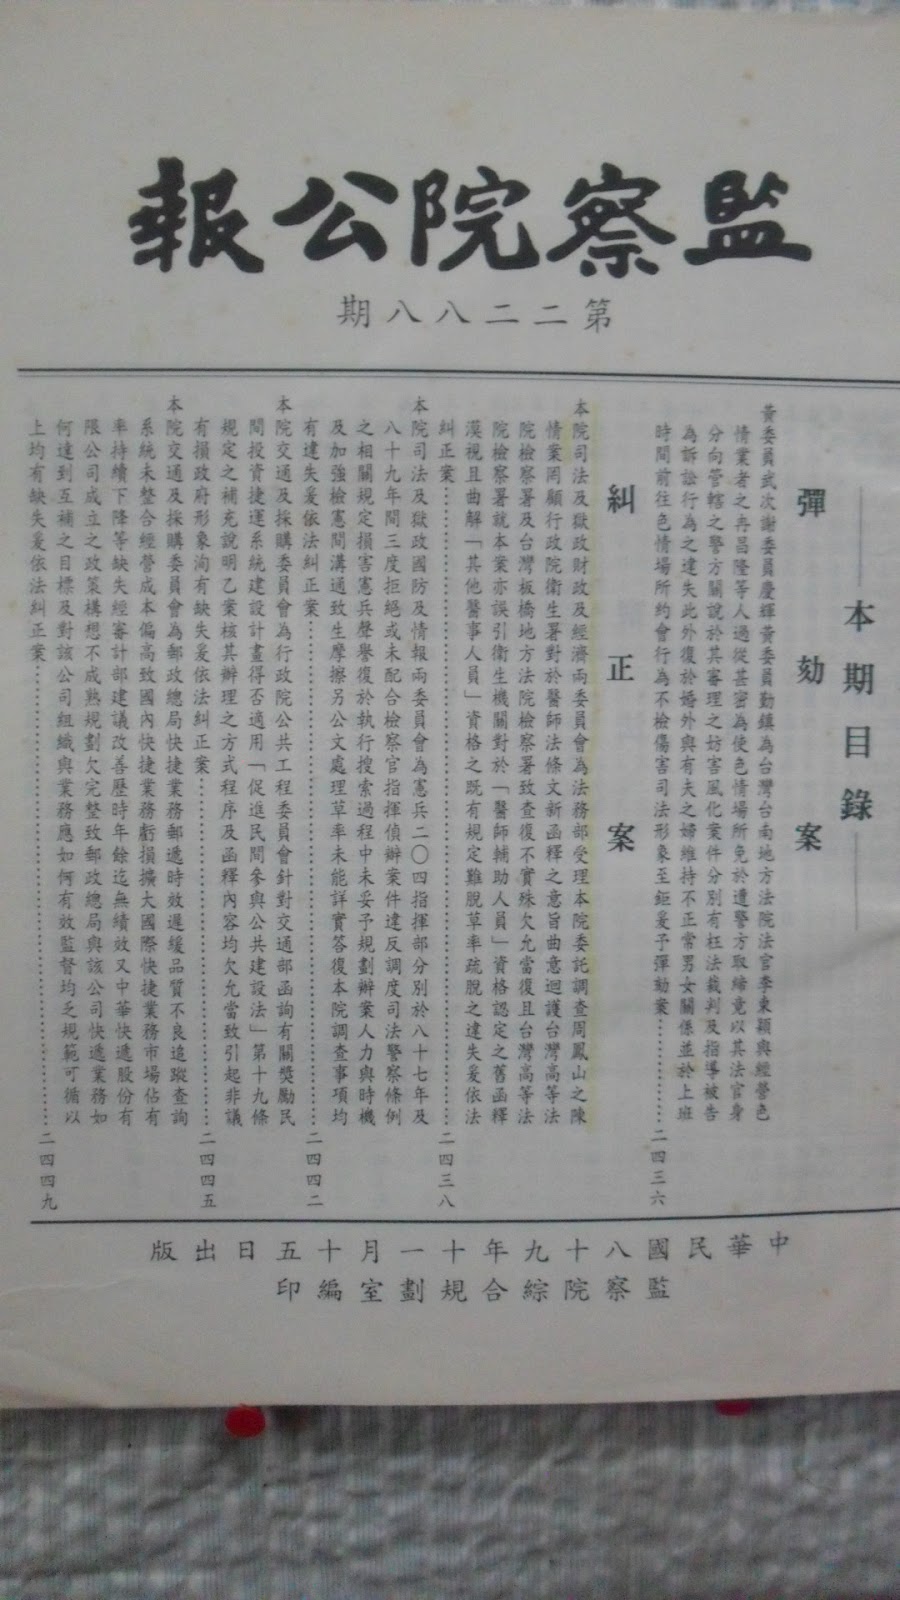 監察院公報
第二二八八期
本期目錄
彈劾案
黃委員武次謝委員慶輝黃委員勤鎮為台灣台南地方法院法官李東穎與經營色
情業者之冉昌隆等人過從甚密為使色情場所免於遭警方取締竟以其法官身
分向管轄之警方關說於其審理之妨害風化業件分別有枉法裁判及指導被告
為訴訟行為之違失此外復於婚外與有夫之婦維持不正常男女關係並於上班
時間前往色情場所約會行為不檢傷害司法形象至鉅爰予彈劾案…………二四三六
糾正案
本院司法及獄政財政及經濟兩委員會為法務部受理本院委託調查周鳳山之陳
情案罔顧行政院衛生署對於醫師法條文新函釋之意旨曲意迴護台灣高等法
院檢察署及台灣板橋地方法院檢察署致查復不實殊欠允當復且台灣高等法
院檢察署就本業亦誤引衛生機關對於「醫師輔助人員」資格認定之舊函釋
漠視且曲解「其他醫事人員」資格之既有規定難脫草率疏脫之違失爰依法
糾正業…………二四三八
本院司法及獄政國防及情報兩委員會為憲兵二〇四指揮部分別於八十七年及
八十九年間三度拒絕或未配合檢察官指揮偵辦案件違反調度司法警察條例
之相關規定損害憲兵聲譽復於執行搜索過程中未妥予規劃辦案人力與時機
及加強檢憲間溝通致生摩擦另公文處理草率未能詳實答復本院調查事項均
有違失爰依法糾正案…………二四四二
本院交通及採購委員會為行政院公共工程委員會針對交通部函詢有關獎勵民
間投資捷運系統建設計畫得否適用「促進民間參與公共建設法」第十九條
規定之補充說明乙業核其辦理之方式程序及函釋內容均欠允當致引起非議
有損政府形象洵有缺失爰依法糾正案…………二四四五
本院交通及採購委員會為郵政總局快捷業務郵遞時效遲緩品質不良追蹤查詢
系統未整合經營成本偏高致國內快捷業務虧損擴大國際快捷業務市場佔有
率持續下降等缺失經審計部建議改善歷時年餘迄無績效又中華快遞股份有
限公司成立之政策構想不成熟規劃欠完整致郵政總局與該公司快遞業務如
何達到互補之目標及對該公司組織與業務應如何有效監督均乏規範可循以
上均有缺失爰依法糾正業…………二四四九
中華民國八十九年十一月十五日出版
監察院綜合規劃室編印